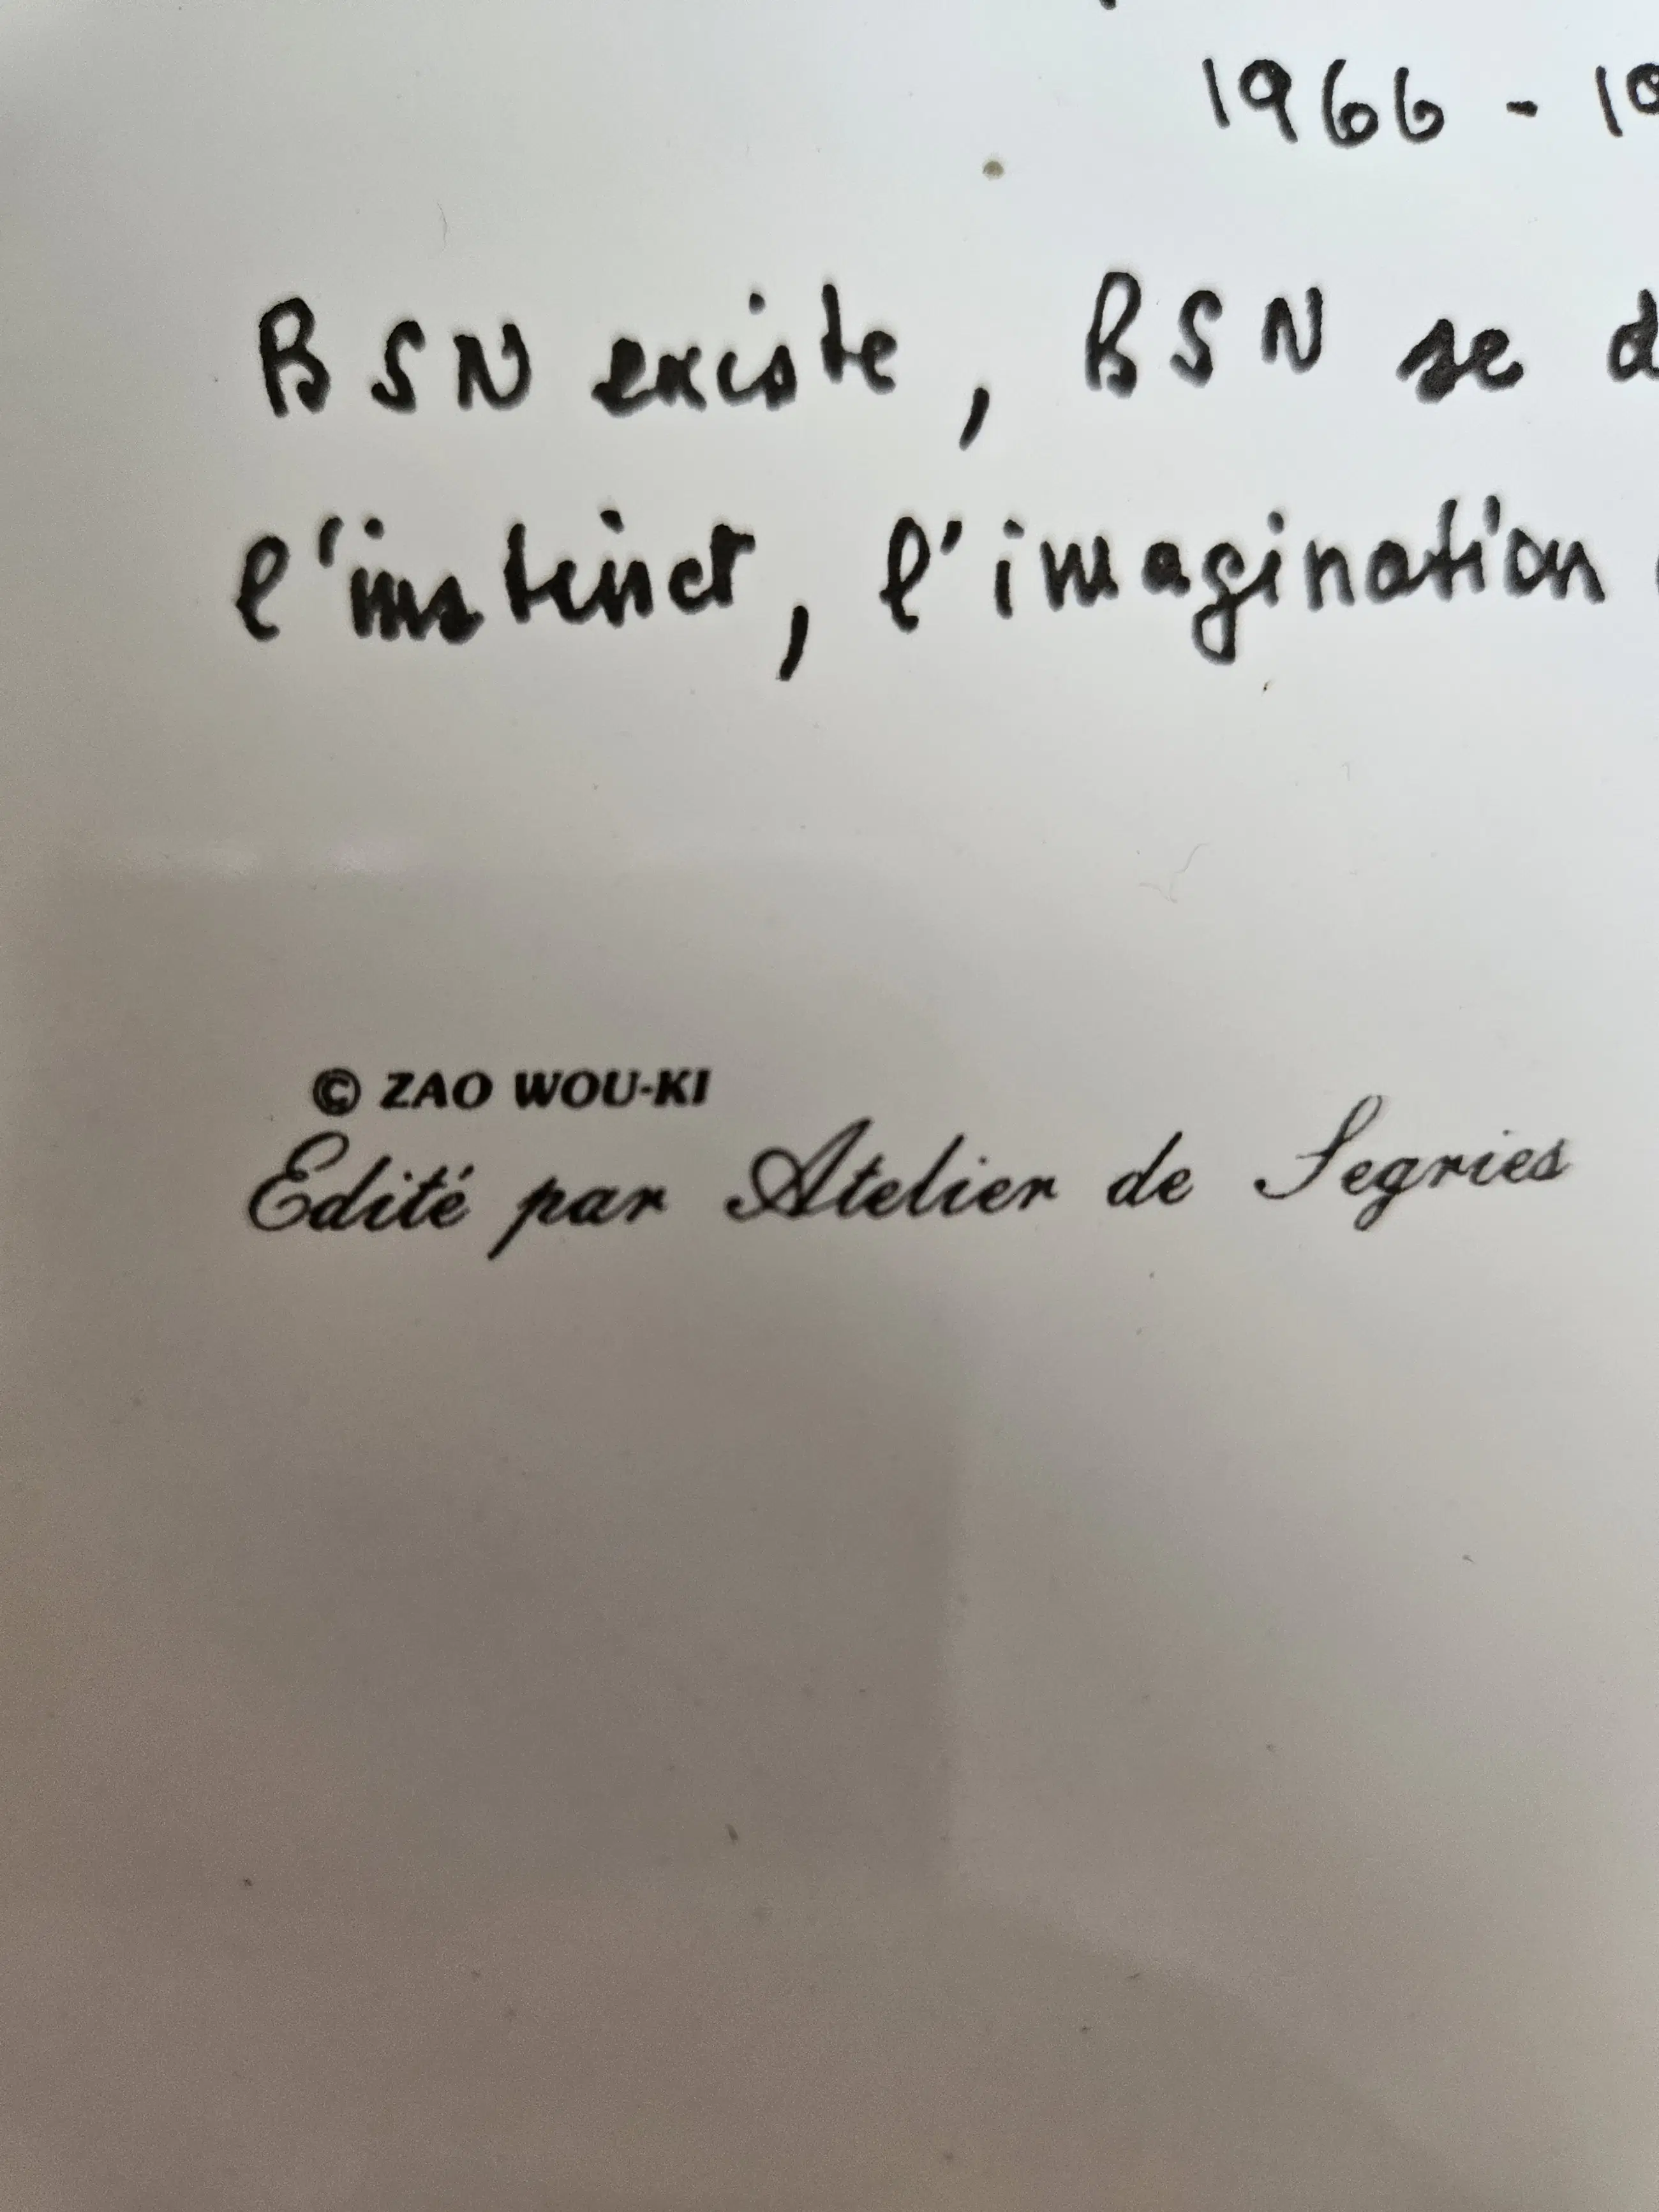 1966 - 19
BSN existe, BSN se d
l'instinct, l'imagination
© ZAO WOU-KI
Edité par Atelier de Segries